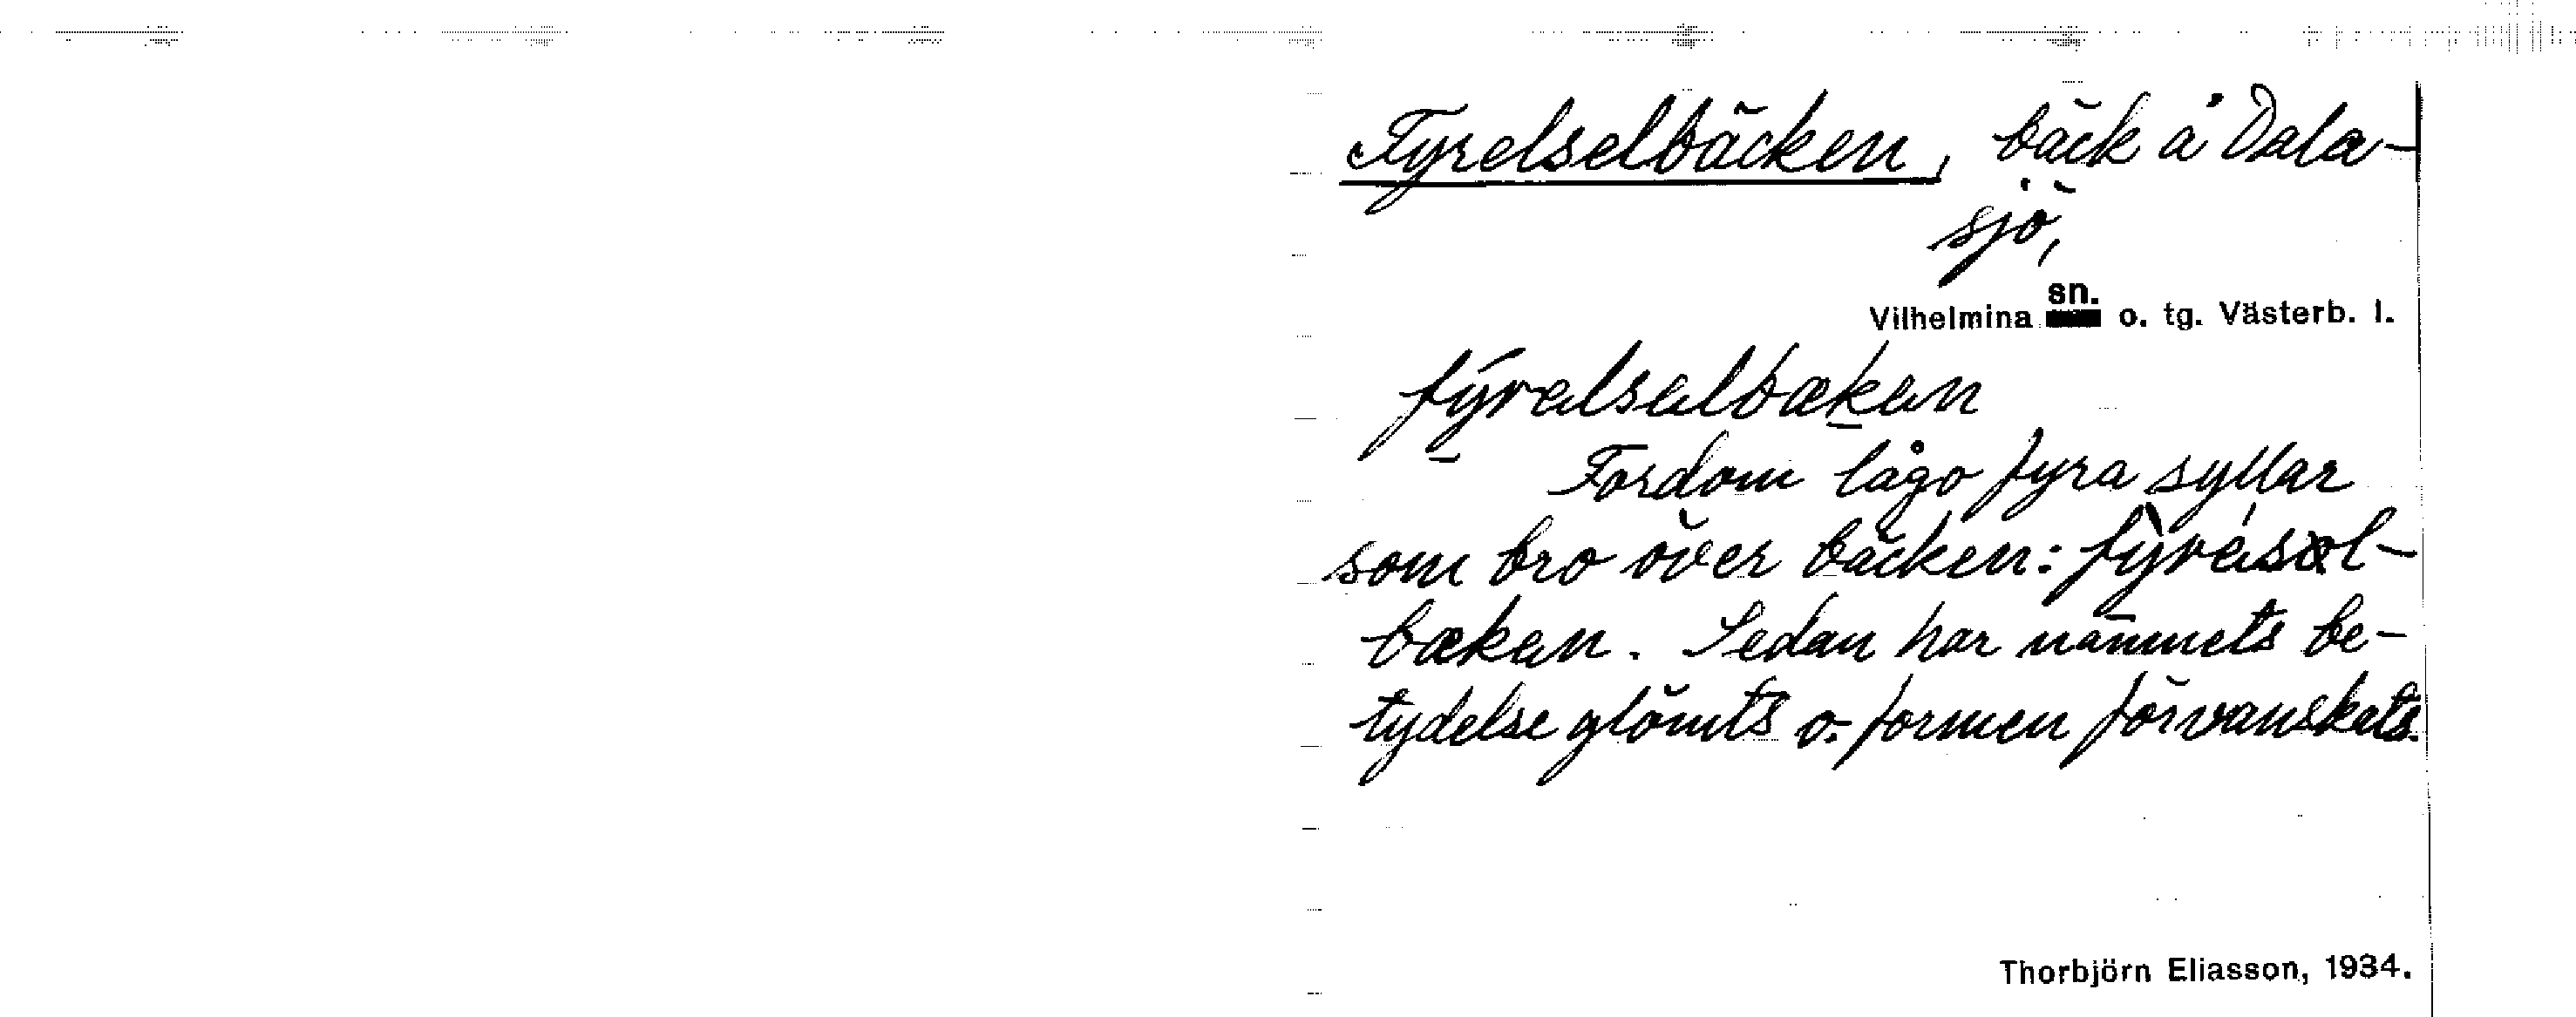 Fyrelselbäcken, bäck å Dala-
sjö,
Vilhelmina sn. o. tg. Västerb. l.
fýrelselbæken
Fordom lågo fyra syllar
som bro över bäcken: fy̔résol-
bæken. Sedan har namnets be-
tydelse glömts o. formen förvanskats.
Thorbjörn Eliasson, 1934.